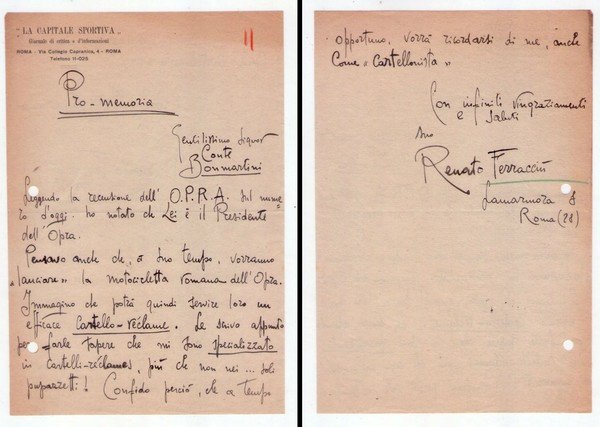 "LA CAPITALE SPORTIVA"
Giornale di critica e d'informazioni
ROMA - Via Collegio Capranica, 4 - ROMA
Telefono 11-025
11
Pro-memoria
Gentilissimo Signor
Conte
Bonmartini
Leggendo la recensione dell' O.P.R.A. sul nume
ro d'oggi, ho notato che Lei è il Presidente
dell'Opra.
Pensavo anche che, a suo tempo, vorranno
"lanciare" la motocicletta romana dell'Opra.
Immagino che potrà quindi servire loro un
efficace Cartello-réclame. Le scrivo appunto
per farle sapere che mi sono specializzato
in cartelli-réclames, più che non nei ... soli
pupazzetti! Confido perciò, che a tempo
opportuno, vorrà ricordarsi di me, anche
come "Cartellonista"
Con infiniti ringraziamenti
e saluti
suo
Renato Ferraccin
Lamarmora 8
Roma (28)